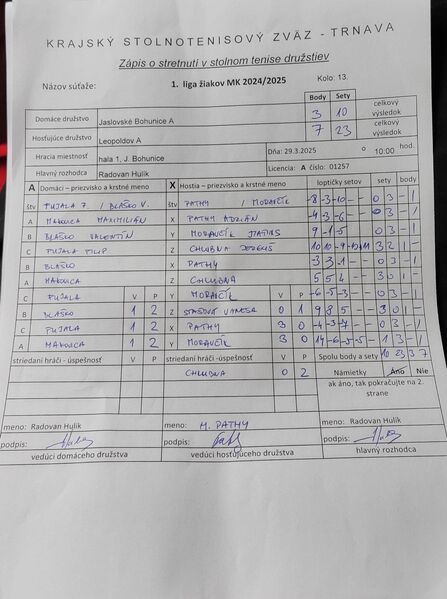 KRAJSKÝ STOLNOTENISOVÝ ZVÄZ - TRNAVA
Zápis o stretnutí v stolnom tenise družstiev
Názov súťaže: 1. liga žiakov MK 2024/2025 Kolo: 13.
Body Sety
Domáce družstvo Jaslovské Bohunice A 3 10 celkový výsledok
Hosťujúce družstvo Leopoldov A 7 23 celkový výsledok
Hracia miestnosť hala 1, J. Bohunice Dňa: 29.3.2025 o 10:00 hod.
Hlavný rozhodca Radovan Hulík Licencia: A číslo: 01257
A Domáci – priezvisko a krstné meno X Hostia – priezvisko a krstné meno loptičky setov sety body
štv PUJALA F. / BLAŠKO V. štv PATHY / MORAVČÍK -8 -3 -10 - - 0 3 - 1
A MAKOVCA MAXIMILIÁN X PATHY ADRIÁN -4 -3 -6 - - 0 3 - 1
B BLAŠKO VALENTÍN Y MORAVČÍK
C PUJALA FILIP Z CHLUBNA 3 2 1 -
B BLAŠKO X PATHY 0 3 - 1
A MAKOVCA Z CHLUBNA 5 5 4 - - 3 0 1 -
C PUJALA V P Y MORAVČÍK V P -6 -5 -3 - - 0 3 - 1
B BLAŠKO 1 2 Z 0 1 9 8 5 - - 3 0 1 -
C PUJALA 1 2 X PATHY 3 0 -4 -3 -7 - - 0 3 - 1
A MAKOVCA 1 2 Y MORAVČÍK 3 0 14 -6 -5 -5 - 1 3 - 1
striedaní hráči - úspešnosť V P striedaní hráči - úspešnosť V P Spolu body a sety 10 23 3 7
CHLUBNA 0 2 Námietky Áno Nie
ak áno, tak pokračujte na 2. strane
meno: Radovan Hulík meno: M. PATHY meno: Radovan Hulík
podpis: podpis: podpis:
vedúci domáceho družstva vedúci hosťujúceho družstva hlavný rozhodca